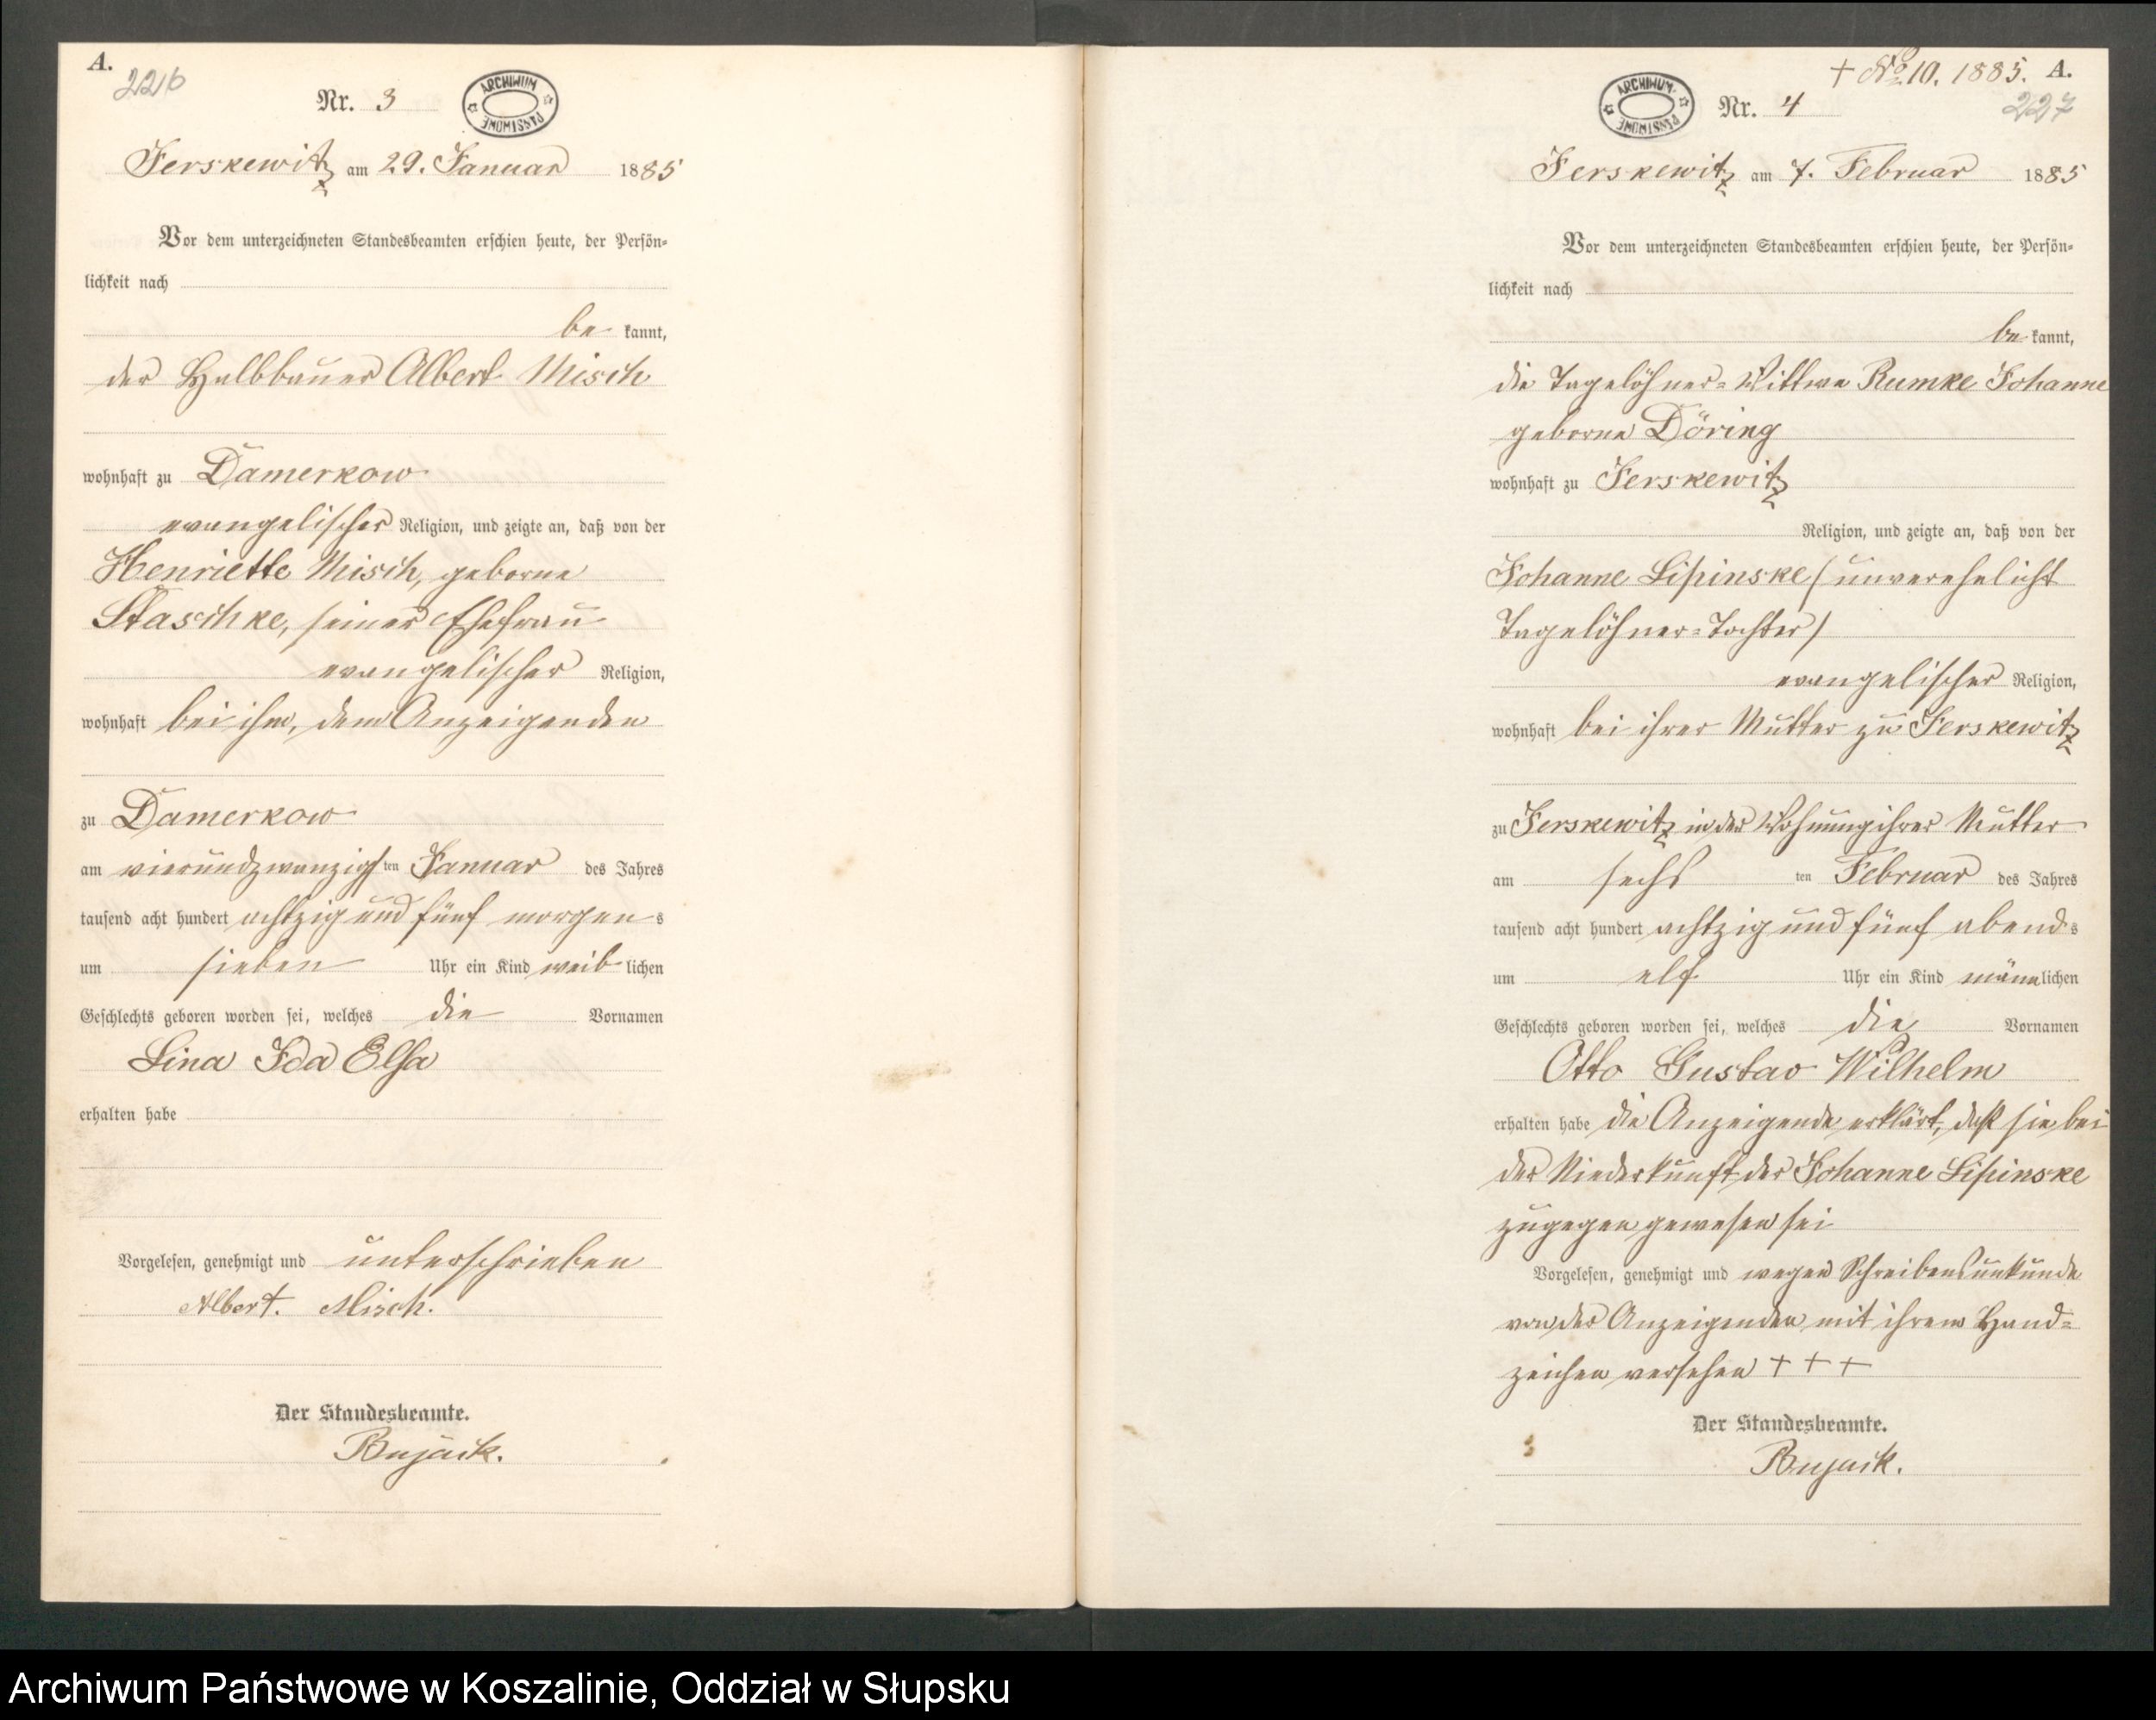 A.
226
Nr. 3
ARCHIWUM PAŃSTWOWE
Ferskewitz am 29. Januar 1885
Vor dem unterzeichneten Standesbeamten erschien heute, der Persön-
lichkeit nach
be kannt,
der Halbbauer Albert Misch
wohnhaft zu Damerkow
evangelischer Religion, und zeigte an, daß von der
Henriette Misch, geborne
Staschke, seiner Ehefrau
evangelischer Religion,
wohnhaft bei ihm, dem Anzeigenden
zu Damerkow
am vierundzwanzigsten Januar des Jahres
tausend acht hundert achtzig und fünf morgens
um sieben Uhr ein Kind weib lichen
Geschlechts geboren worden sei, welches die Vornamen
Lina Ida Elsa
erhalten habe
Vorgelesen, genehmigt und unterschrieben
Albert. Misch.
Der Standesbeamte.
Bujack.
+ No 10. 1885. A.
227
ARCHIWUM PAŃSTWOWE
Nr. 4
Ferskewitz am 7. Februar 1885
Vor dem unterzeichneten Standesbeamten erschien heute, der Persön-
lichkeit nach
be kannt,
die Tagelöhner-Wittwe Rumke Johanne
geborne Döring
wohnhaft zu Ferskewitz
Religion, und zeigte an, daß von der
Johanne Lipinske (unverehelicht
Tagelöhner-Tochter)
evangelischer Religion,
wohnhaft bei ihrer Mutter zu Ferskewitz
zu Ferskewitz in der Wohnung ihrer Mutter
am sechs ten Februar des Jahres
tausend acht hundert achtzig und fünf abends
um elf Uhr ein Kind männlichen
Geschlechts geboren worden sei, welches die Vornamen
Otto Gustav Wilhelm
erhalten habe die Anzeigende erklärt, daß sie bei
der Niederkunft der Johanne Lipinske
zugegen gewesen sei
Vorgelesen, genehmigt und wegen Schreibensunkunde
von der Anzeigenden mit ihrem Hand-
zeichen versehen + + +
Der Standesbeamte.
Bujack.
Archiwum Państwowe w Koszalinie, Oddział w Słupsku